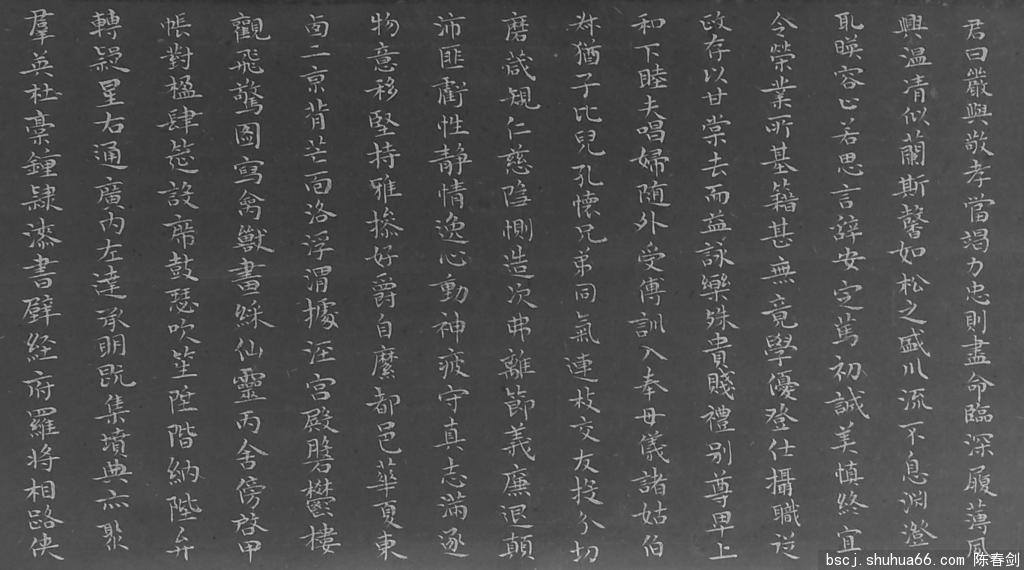 君曰嚴與敬孝當竭力忠則盡命臨深履薄夙
興溫清似蘭斯馨如松之盛川流不息淵澄
取暎容止若思言辭安定篤初誠美慎終宜
令榮業所基籍甚無竟學優登仕攝職從
政存以甘棠去而益詠樂殊貴賤禮別尊卑上
和下睦夫唱婦随外受傅訓入奉母儀諸姑伯
叔猶子比兒孔懷兄弟同氣連枝交友投分切
磨箴規仁慈隱惻造次弗離節義廉退顛
沛匪虧性靜情逸心動神疲守真志滿逐
物意移堅持雅操好爵自縻都邑華夏東
西二京背芒面洛浮渭據涇宮殿磐鬱樓
觀飛驚圖寫禽獸畫綵仙靈丙舍傍啓甲
帳對楹肆筵設席鼓瑟吹笙陞階納陛弁
轉疑星右通廣內左達承明既集墳典亦聚
羣英杜稾鍾隸漆書壁經府羅將相路俠
bscj.shuhua66.com 陈春剑